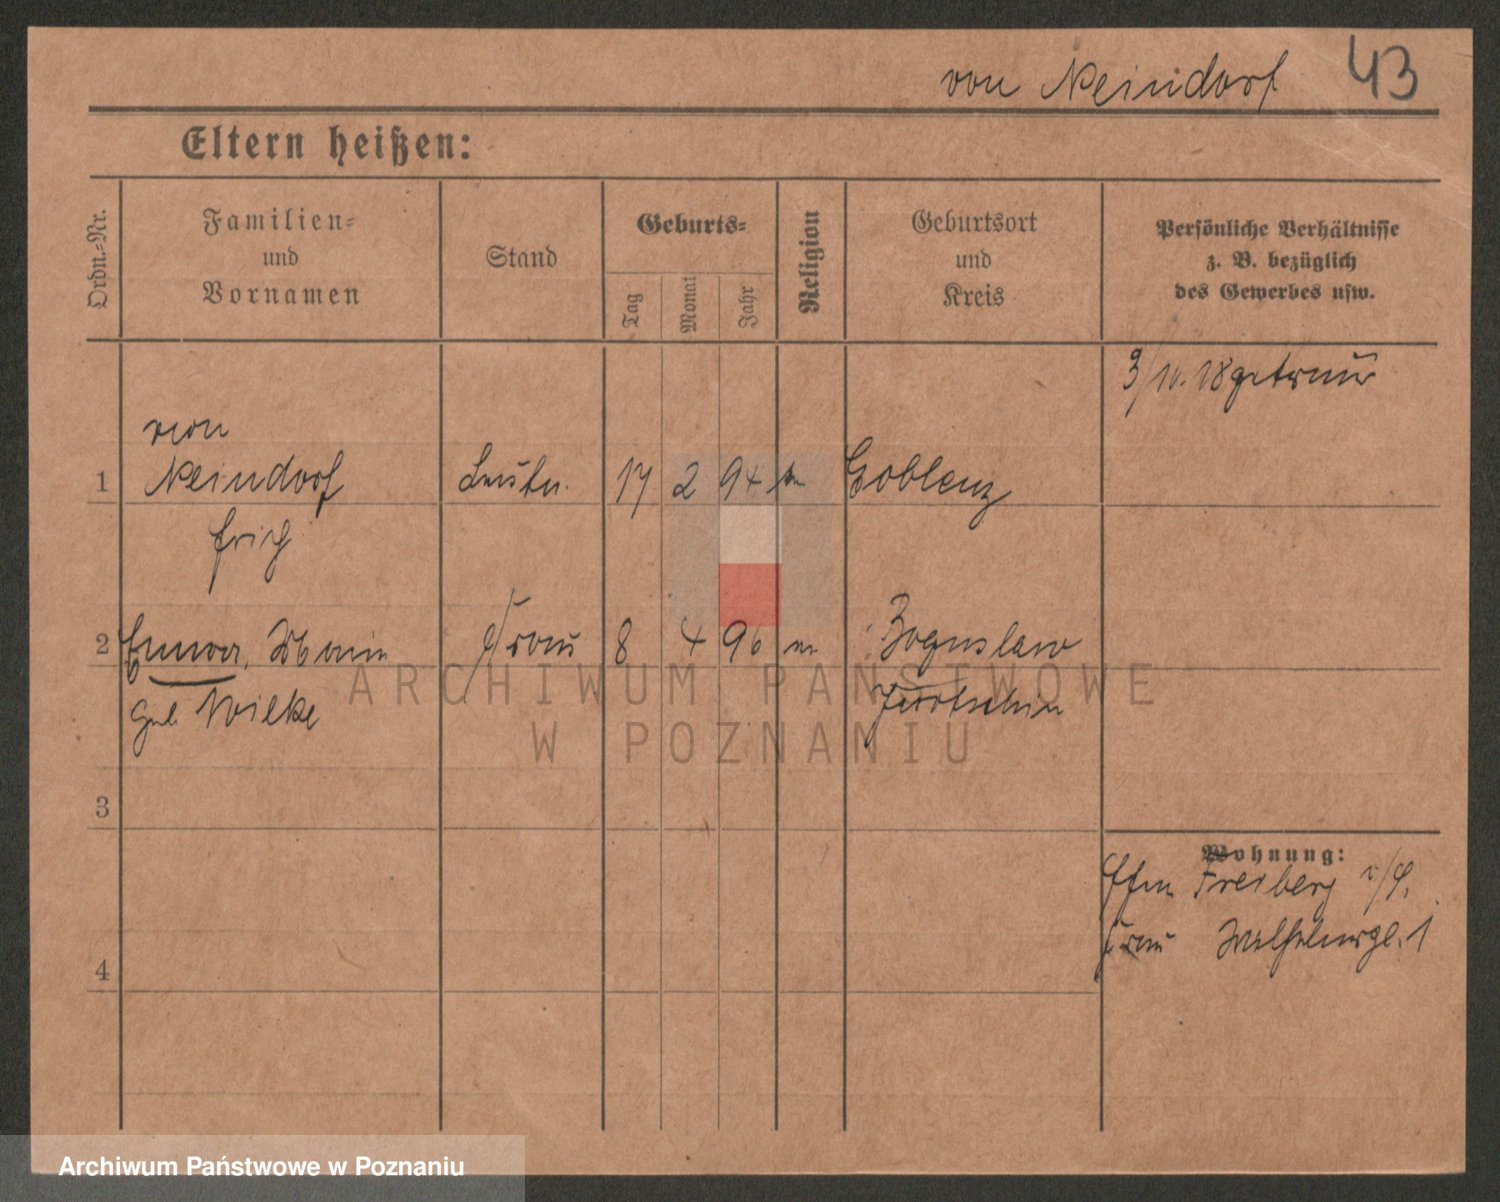 von Neindorf 43
Eltern heißen:
Ordn.-Nr.
Familien-
und
Vornamen
Stand
Geburts-
Tag
Monat
Jahr
Religion
Geburtsort
und
Kreis
Persönliche Verhältnisse
z. B. bezüglich
des Gewerbes usw.
3/10. 18 getraut
von
1 Neindorf Leutn. 17 2 94 Coblenz
Erich
2 Emma, Marie Frau 8 4 96 Boguslaw
geb. Wilke Jarotschin
3
Wohnung:
Ehem Freiberg i/S.
Frau 1
4
ARCHIWUM PAŃSTWOWE
W POZNANIU
Archiwum Państwowe w Poznaniu